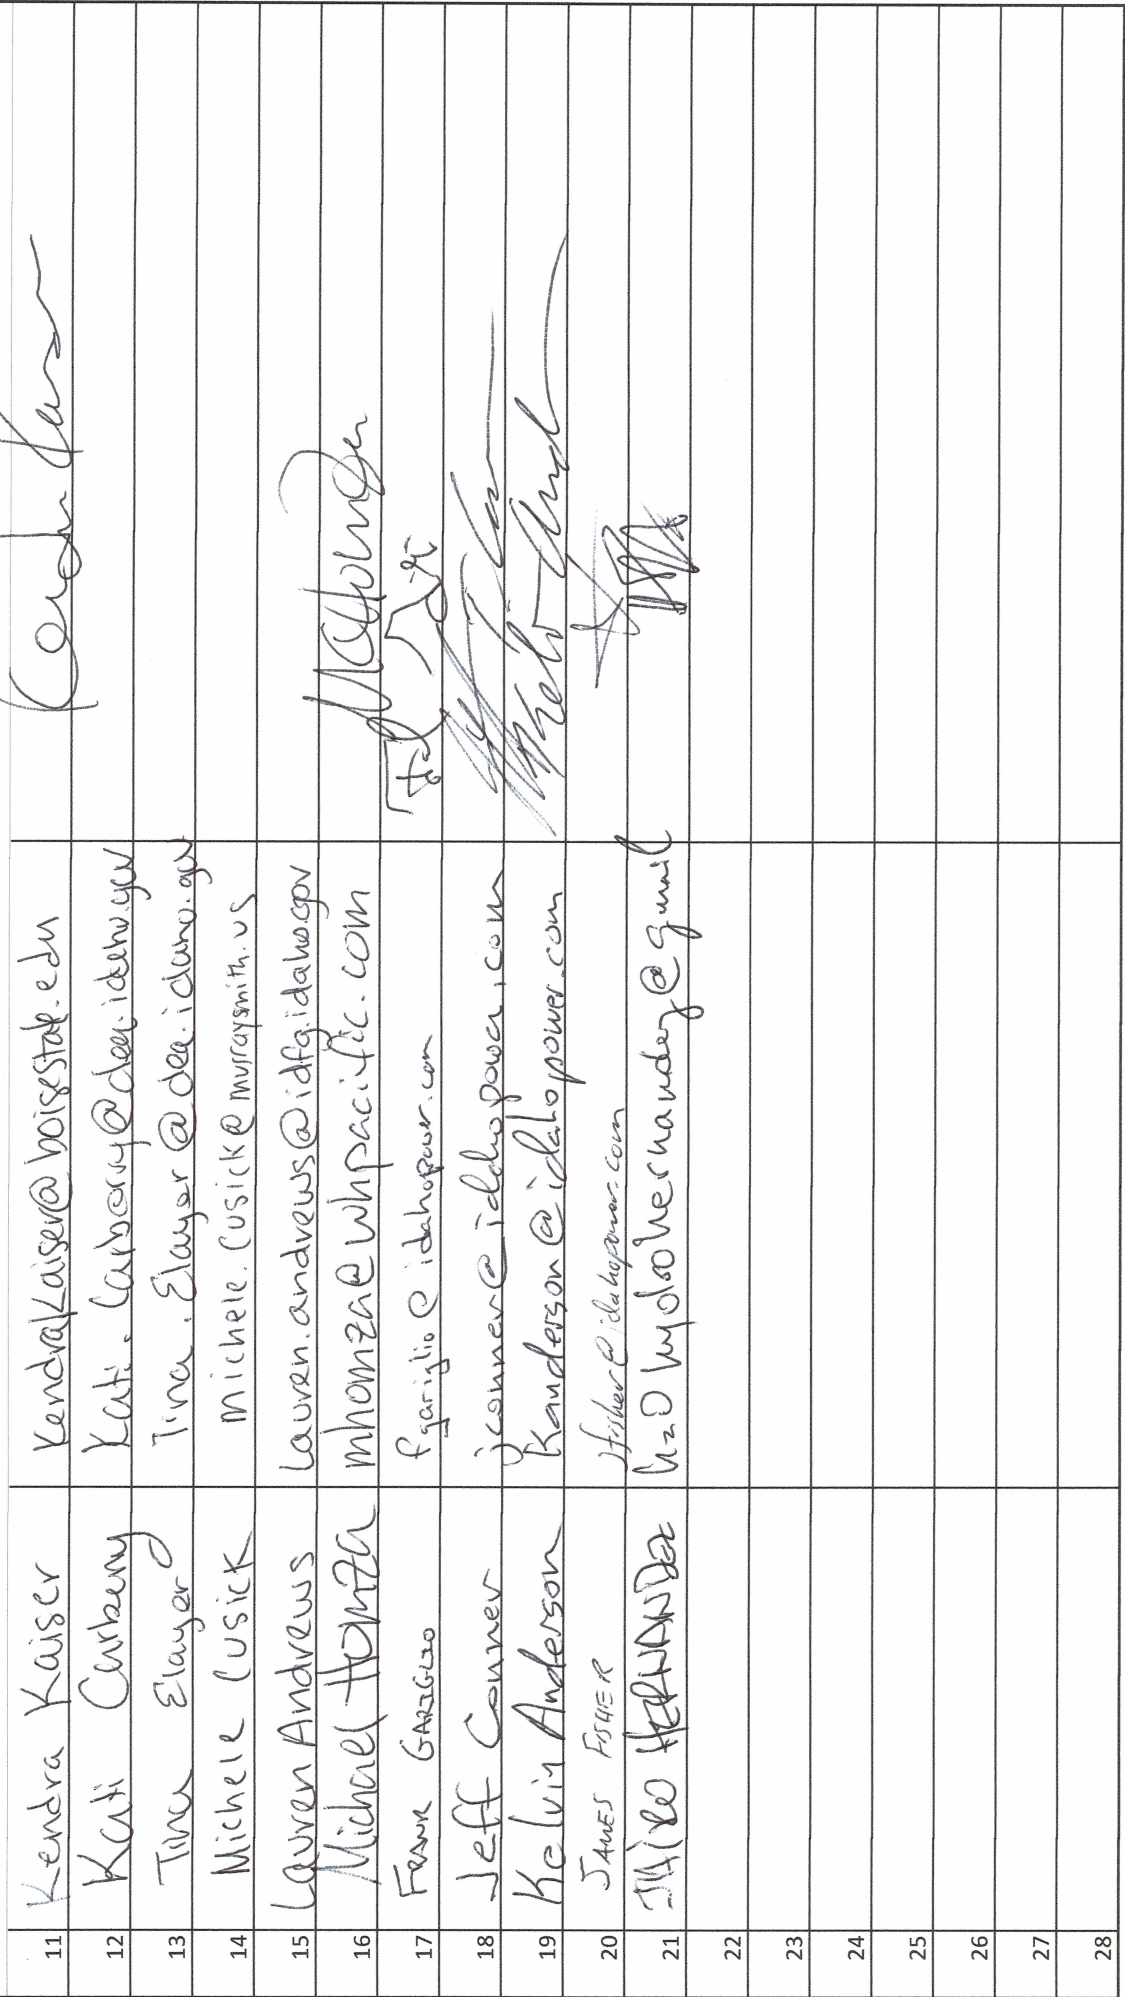 11 Kendra Kaiser KendraKaiser@boisestate.edu
12 Kati Carberry Kati.Carberry@deq.idaho.gov
13 Tina Elayer Tina.Elayer@deq.idaho.gov
14 Michele Cusick michele.cusick@murraysmith.us
15 Lauren Andrews lauren.andrews@idfg.idaho.gov
16 Michael Homza mhomza@whpacific.com
17 FRANK GARIGLIO fgariglio@idahopower.com
18 Jeff Conner jconner@idahopower.com
19 Kelvin Anderson Kanderson@idahopower.com
20 JAMES FISHER jfisher@idahopower.com
21 JAIRO HERNANDEZ @gmail
22
23
24
25
26
27
28